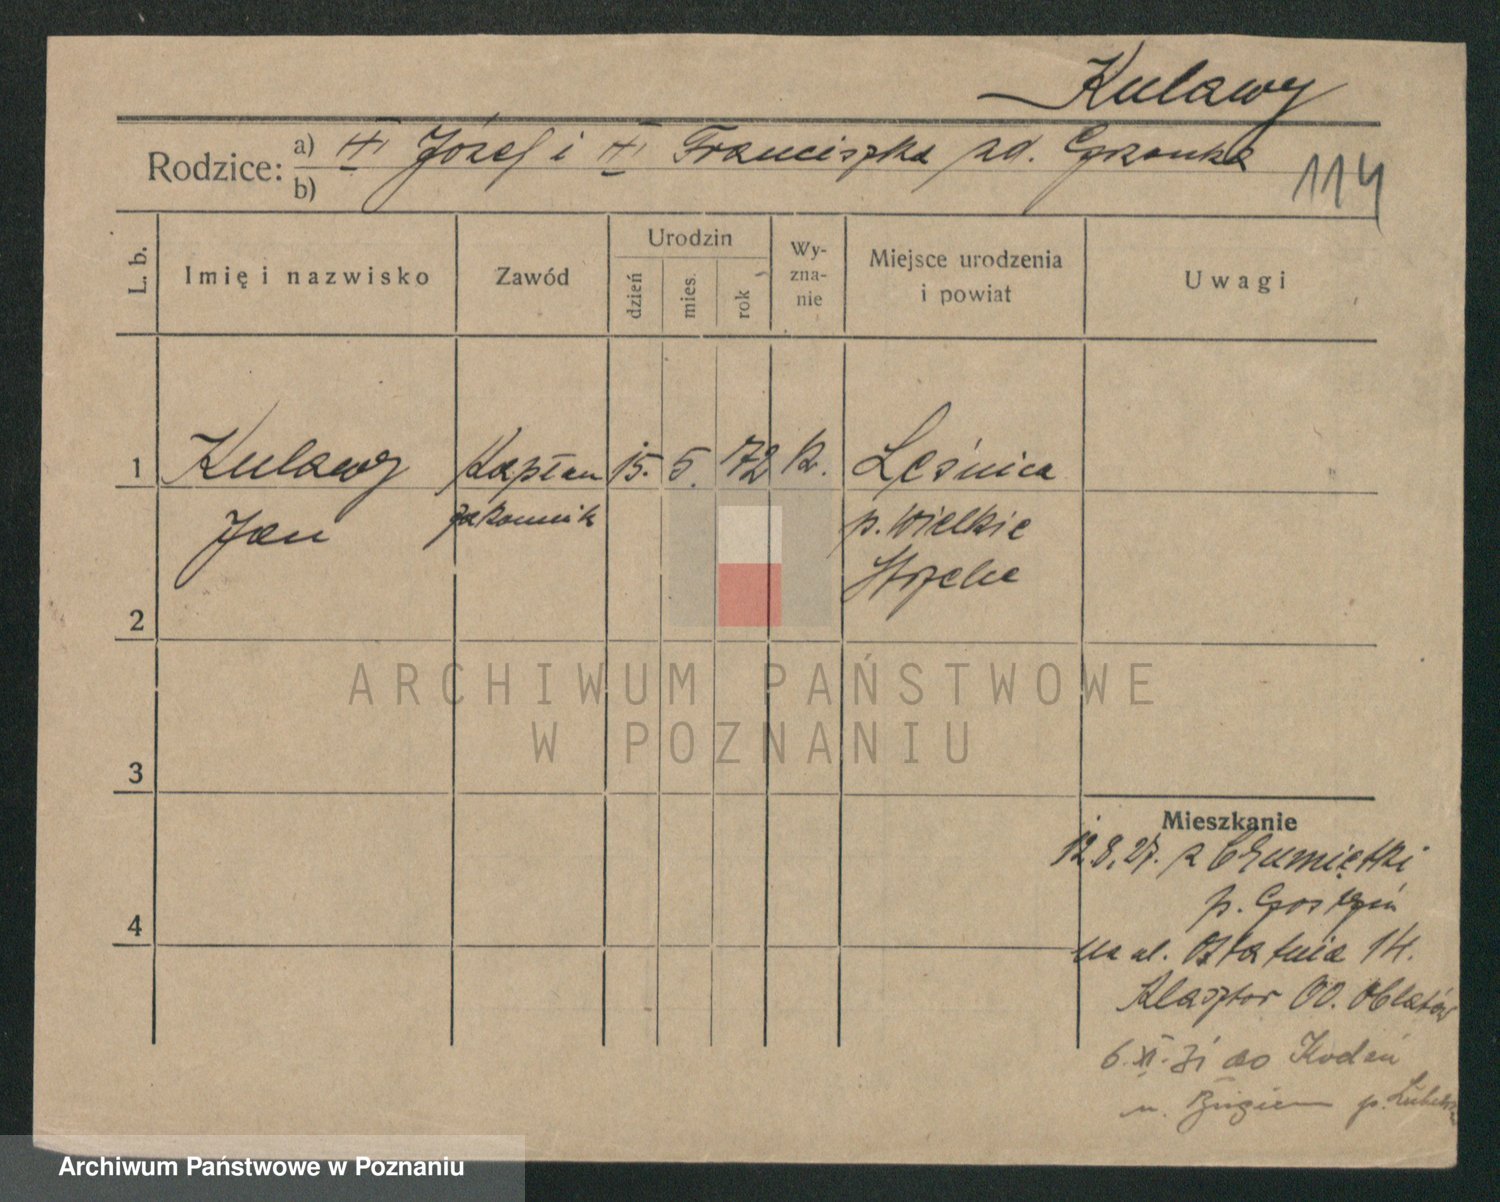 Kulawy
Rodzice: a) Józef i Franciszka zd. Gzronka
b)
114
L. b.
Imię i nazwisko
Zawód
Urodzin
dzień
mies.
rok
Wy-
zna-
nie
Miejsce urodzenia
i powiat
Uwagi
1
Kulawy
Jan
Kapłan
zakonnik
15.
5.
72
k.
Leśnica
p. Wielkie
Strzelce
2
3
4
Mieszkanie
12.8.27. z Chumiętki
p. Gostyń
na ul. Ostatnia 14.
Klasztor OO. Oblatów
6.XI.31 do Kodeń
n. Bugiem p.
ARCHIWUM PAŃSTWOWE
W POZNANIU
Archiwum Państwowe w Poznaniu